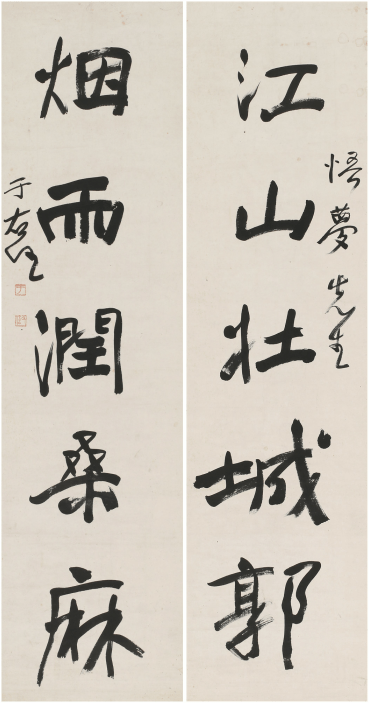 江山壮城郭
悟梦先生
烟雨润桑麻
于右任